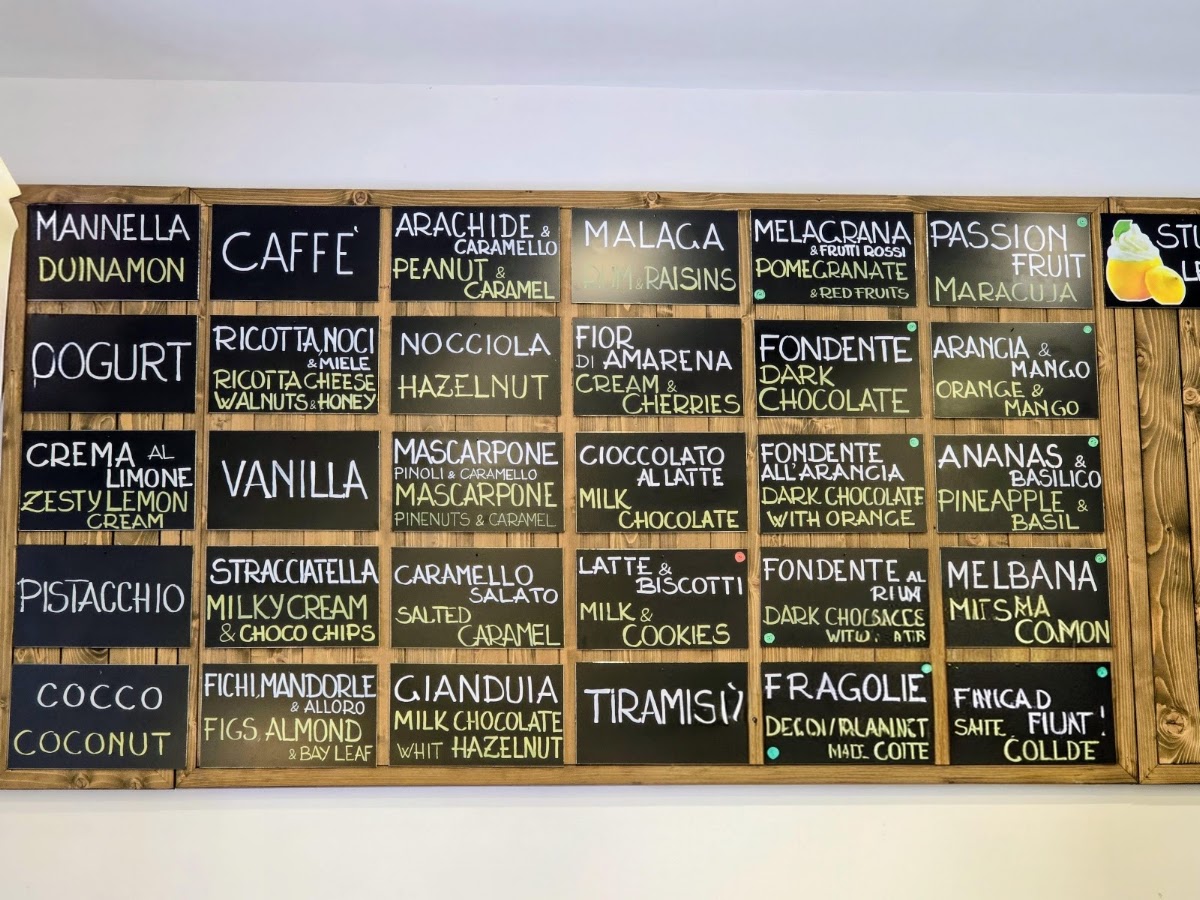 MANNELLA
DUINAMON
CAFFÈ
ARACHIDE &
CARAMELLO
PEANUT &
CARAMEL
MALAGA
RUM & RAISINS
MELAGRANA
& FRUTTI ROSSI
POMEGRANATE
& RED FRUITS
PASSION
FRUIT
MARACUJA
STI
LE
OOGURT
RICOTTA, NOCI
& MIELE
RICOTTA CHEESE
WALNUTS & HONEY
NOCCIOLA
HAZELNUT
FIOR
DI AMARENA
CREAM &
CHERRIES
FONDENTE
DARK
CHOCOLATE
ARANCIA &
MANGO
ORANGE &
MANGO
CREMA AL
LIMONE
ZESTY LEMON
CREAM
VANILLA
MASCARPONE
PINOLI & CARAMELLO
MASCARPONE
PINENUTS & CARAMEL
CIOCCOLATO
AL LATTE
MILK
CHOCOLATE
FONDENTE
ALL'ARANCIA
DARK CHOCOLATE
WITH ORANGE
ANANAS &
BASILICO
PINEAPPLE &
BASIL
PISTACCHIO
STRACCIATELLA
MILKY CREAM
& CHOCO CHIPS
CARAMELLO
SALATO
SALTED
CARAMEL
LATTE &
BISCOTTI
MILK &
COOKIES
FONDENTE AL
DARK
MELBANA
COCCO
COCONUT
FICHI, MANDORLE
& ALLORO
FIGS, ALMOND
& BAY LEAF
GIANDUIA
MILK CHOCOLATE
WHIT HAZELNUT
TIRAMISÙ
FRAGOLIE
COLLDE